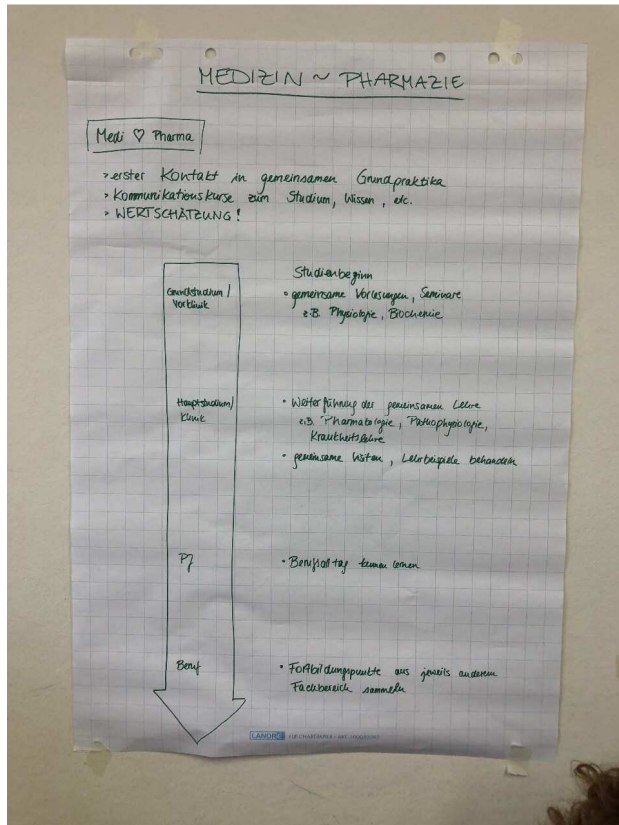 MEDIZIN ~ PHARMAZIE
Medi ♡ Pharma
> erster Kontakt in gemeinsamen Grundpraktika
> Kommunikationskurse zum Studium, Wissen, etc.
> WERTSCHÄTZUNG!
Studienbeginn
Grundstudium /
Vorklinik
• gemeinsame Vorlesungen, Seminare
z.B. Physiologie, Biochemie
Hauptstudium/
Klinik
• Weiterführung der gemeinsamen Lehre
z.B. Pharmatologie, Pathophysiologie,
Krankheitslehre
• gemeinsame Visiten, Lehrbeispiele behandeln
PJ
• Berufsalltag kennen lernen
Beruf
• Fortbildungspunkte aus jeweils anderem
Fachbereich sammeln
LANDRÉ